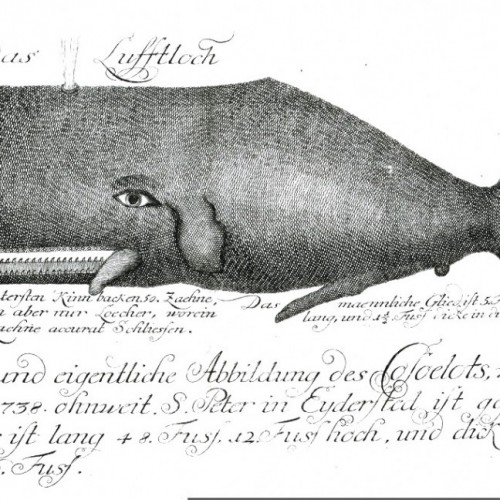 das Lufftloch
tersten Kinn backen 50. Zaehne,
n aber nur Loecher, worein
aehne accurat Schliessen.
Das maennliche Glied ist 5
lang, und 1½ Fuss dicke in di
und eigentliche Abbildung des
738. ohnweit. S. Peter in Eydersted, ist ge
ist lang 48. Fuss. 12. Fuss hoch, und dick
Fuss.